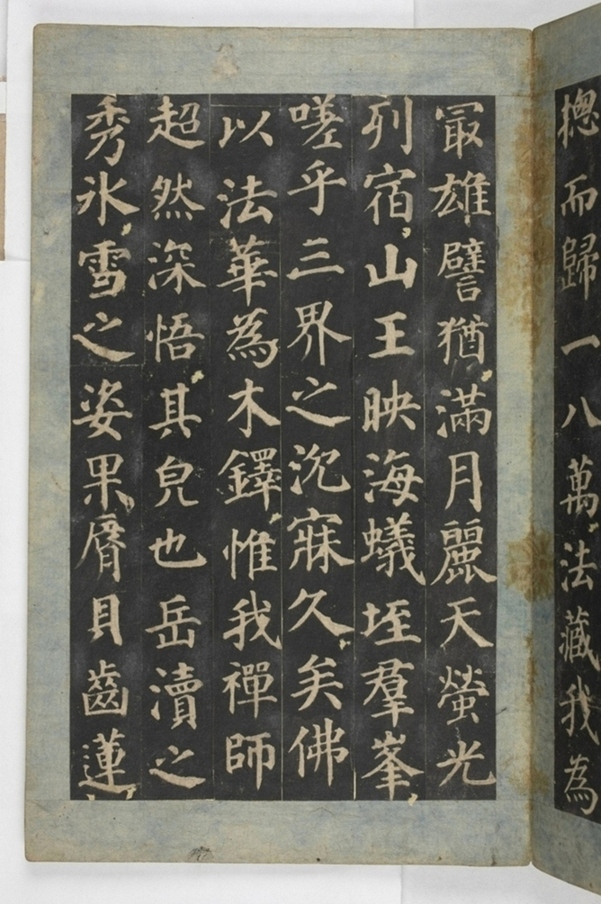 揔而歸一八萬法藏我為
冣雄譬猶滿月麗天螢光
列宿山王映海蟻垤群峯
嗟乎三界之沉寐久矣佛
以法華為木鐸惟我禪師
超然深悟其皃也岳瀆之
秀氷雪之姿果脣貝齒蓮